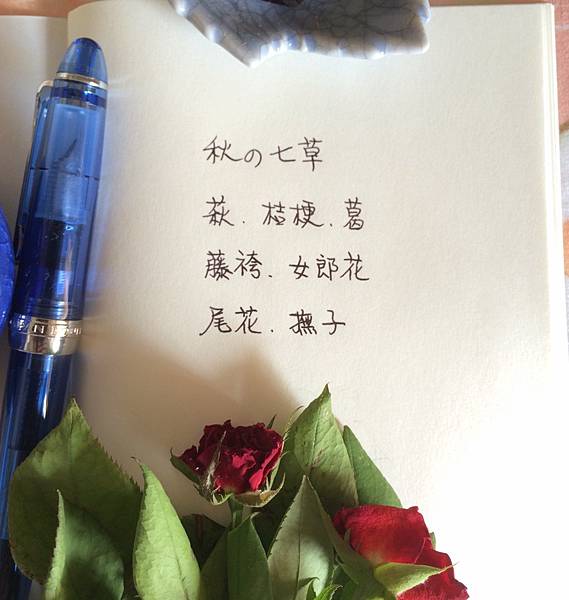 秋の七草
萩．桔梗．葛
藤袴．女郎花
尾花．撫子